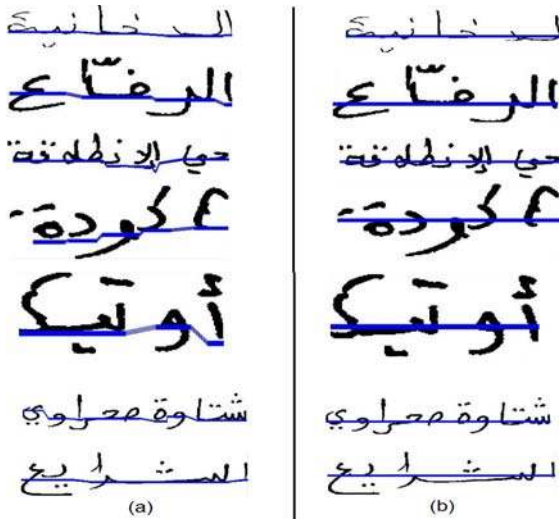 الدخانية
الرضّاع
حي الإنطلاقة
أكودة
أوتيك
شتاوة صحراوي
الشرايع
(a)
الدخانية
الرضّاع
حي الإنطلاقة
أكودة
أوتيك
شتاوة صحراوي
الشرايع
(b)